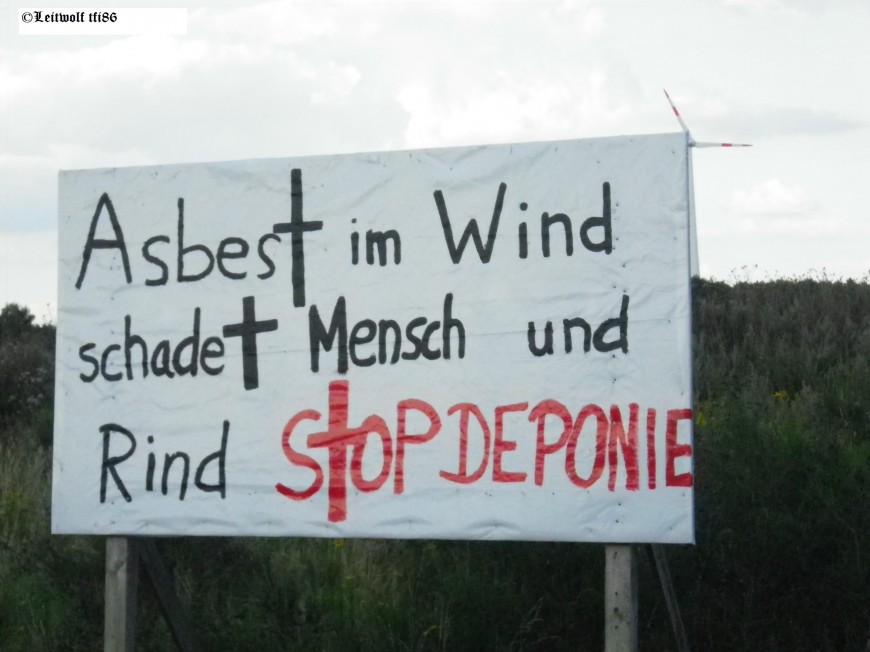 ©Leitwolf tfi86
Asbest im Wind
schadet Mensch und
Rind STOP DEPONIE